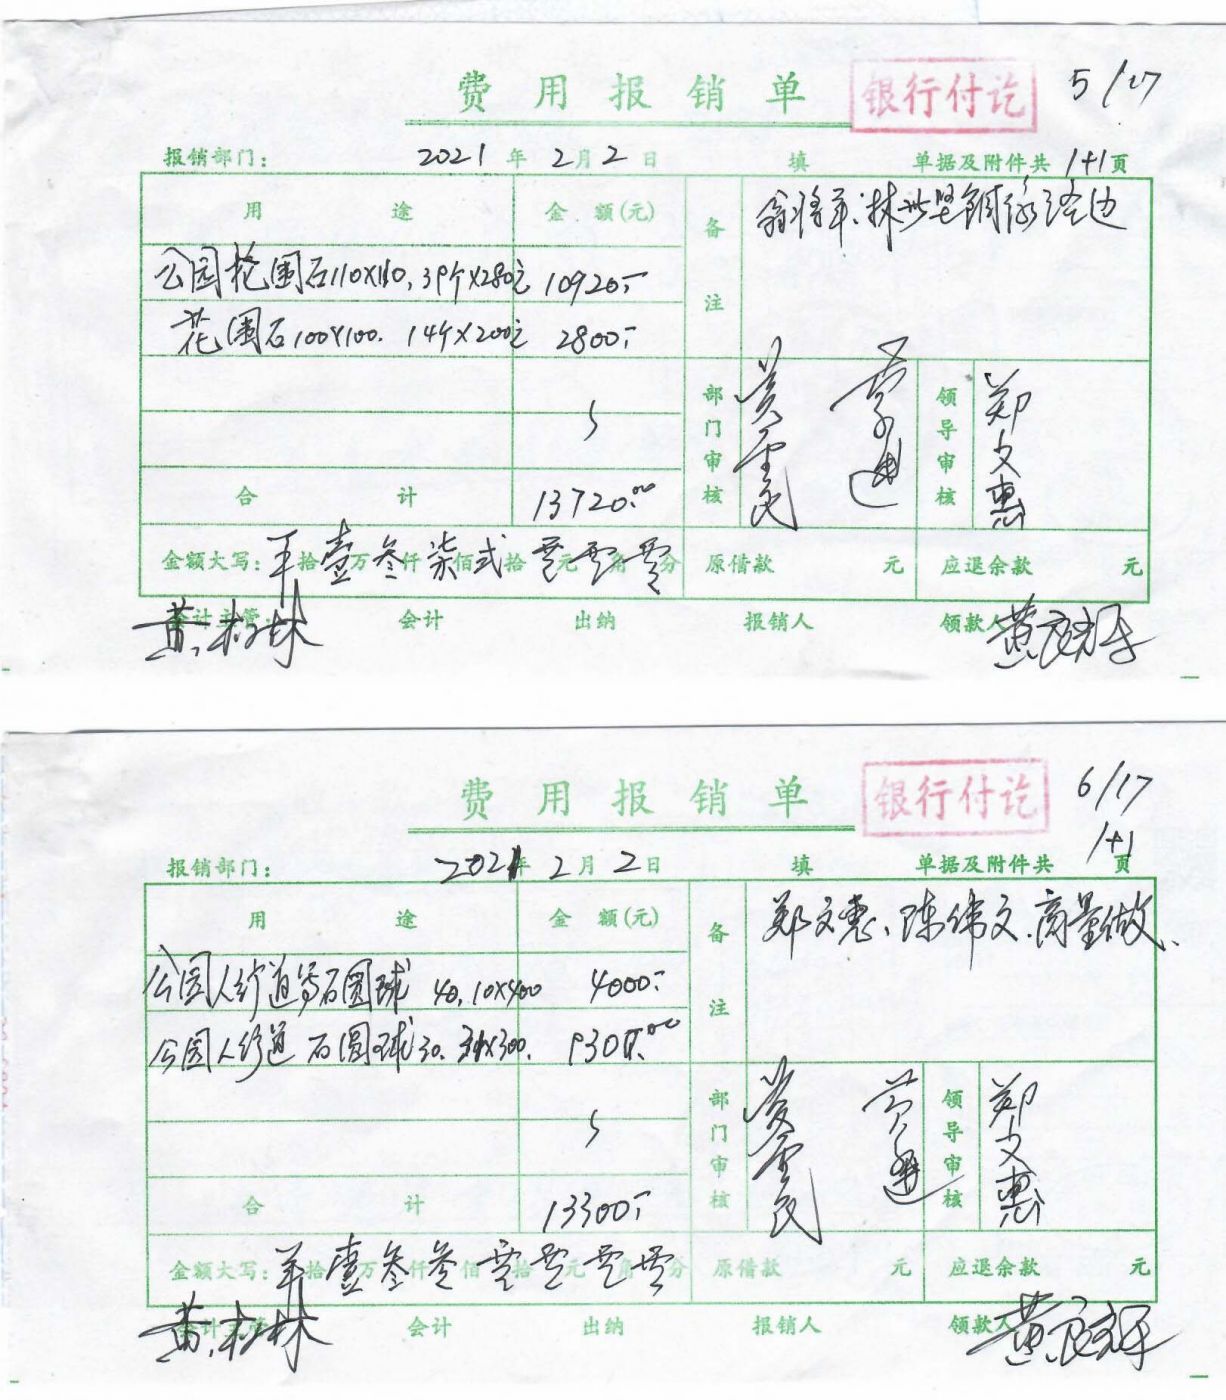 费用报销单 银行付讫 5/17
报销部门： 2021年2月2日 填 单据及附件共 1+1页
用途 金额(元) 备注
公园花围石110X110, 39个X280元 10920.-
花围石100X100. 14个X200元 2800.-
部门审核 领导审核 郑文惠
合计 13720.00
金额大写： 拾壹万叁仟柒佰贰拾零元零角零分 原借款 元 应退余款 元
会计主管： 黄 林 会计 出纳 报销人 领款人
费用报销单 银行付讫 6/17
报销部门： 2021年2月2日 填 单据及附件共 1+1页
用途 金额(元) 备注 郑文惠、陈伟文.商量做、
公园人行道 石圆球 40. 10X400 4000.-
公园人行道 石圆球30. 31X300. 9300.00
部门审核 领导审核 郑文惠
合计 13300.-
金额大写： 拾壹万叁仟叁佰零拾零元零角零分 原借款 元 应退余款 元
会计主管 黄 林 会计 出纳 报销人 领款人